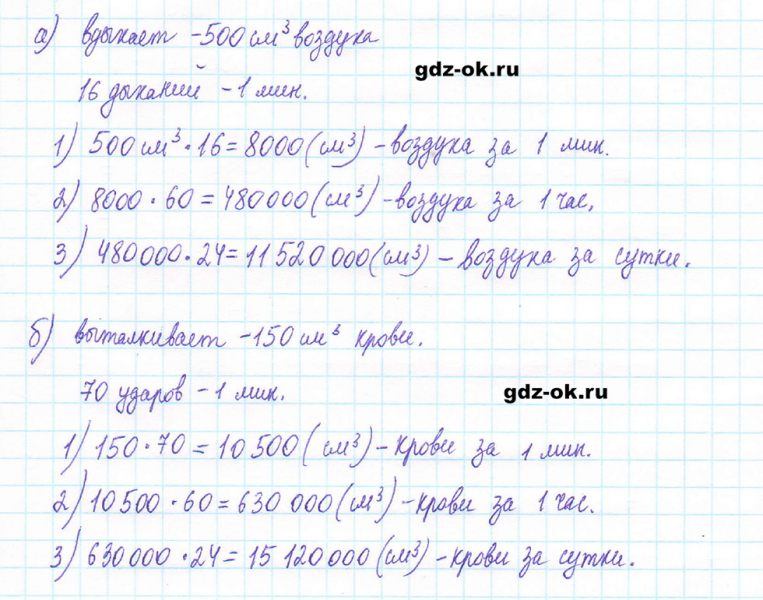 а) вдыхает - 500 см³ воздуха
gdz-ok.ru
16 дыханий - 1 мин.
1) 500 см³ · 16 = 8000 (см³) - воздуха за 1 мин.
2) 8000 · 60 = 480000 (см³) - воздуха за 1 час.
3) 480000 · 24 = 11520000 (см³) - воздуха за сутки.
б) выталкивает - 150 см³ крови.
70 ударов - 1 мин.
gdz-ok.ru
1) 150 · 70 = 10500 (см³) - крови за 1 мин.
2) 10500 · 60 = 630 000 (см³) - крови за 1 час.
3) 630000 · 24 = 15120000 (см³) - крови за сутки.